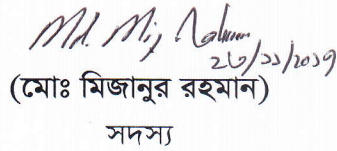 Md. Miz Rahman
২৮/১১/২০১৭
(মোঃ মিজানুর রহমান)
সদস্য